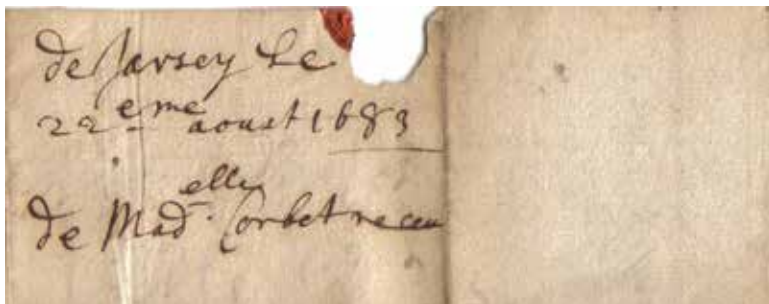 de Jarsey Le
22eme aoust 1683
de Madelle Corbet receu